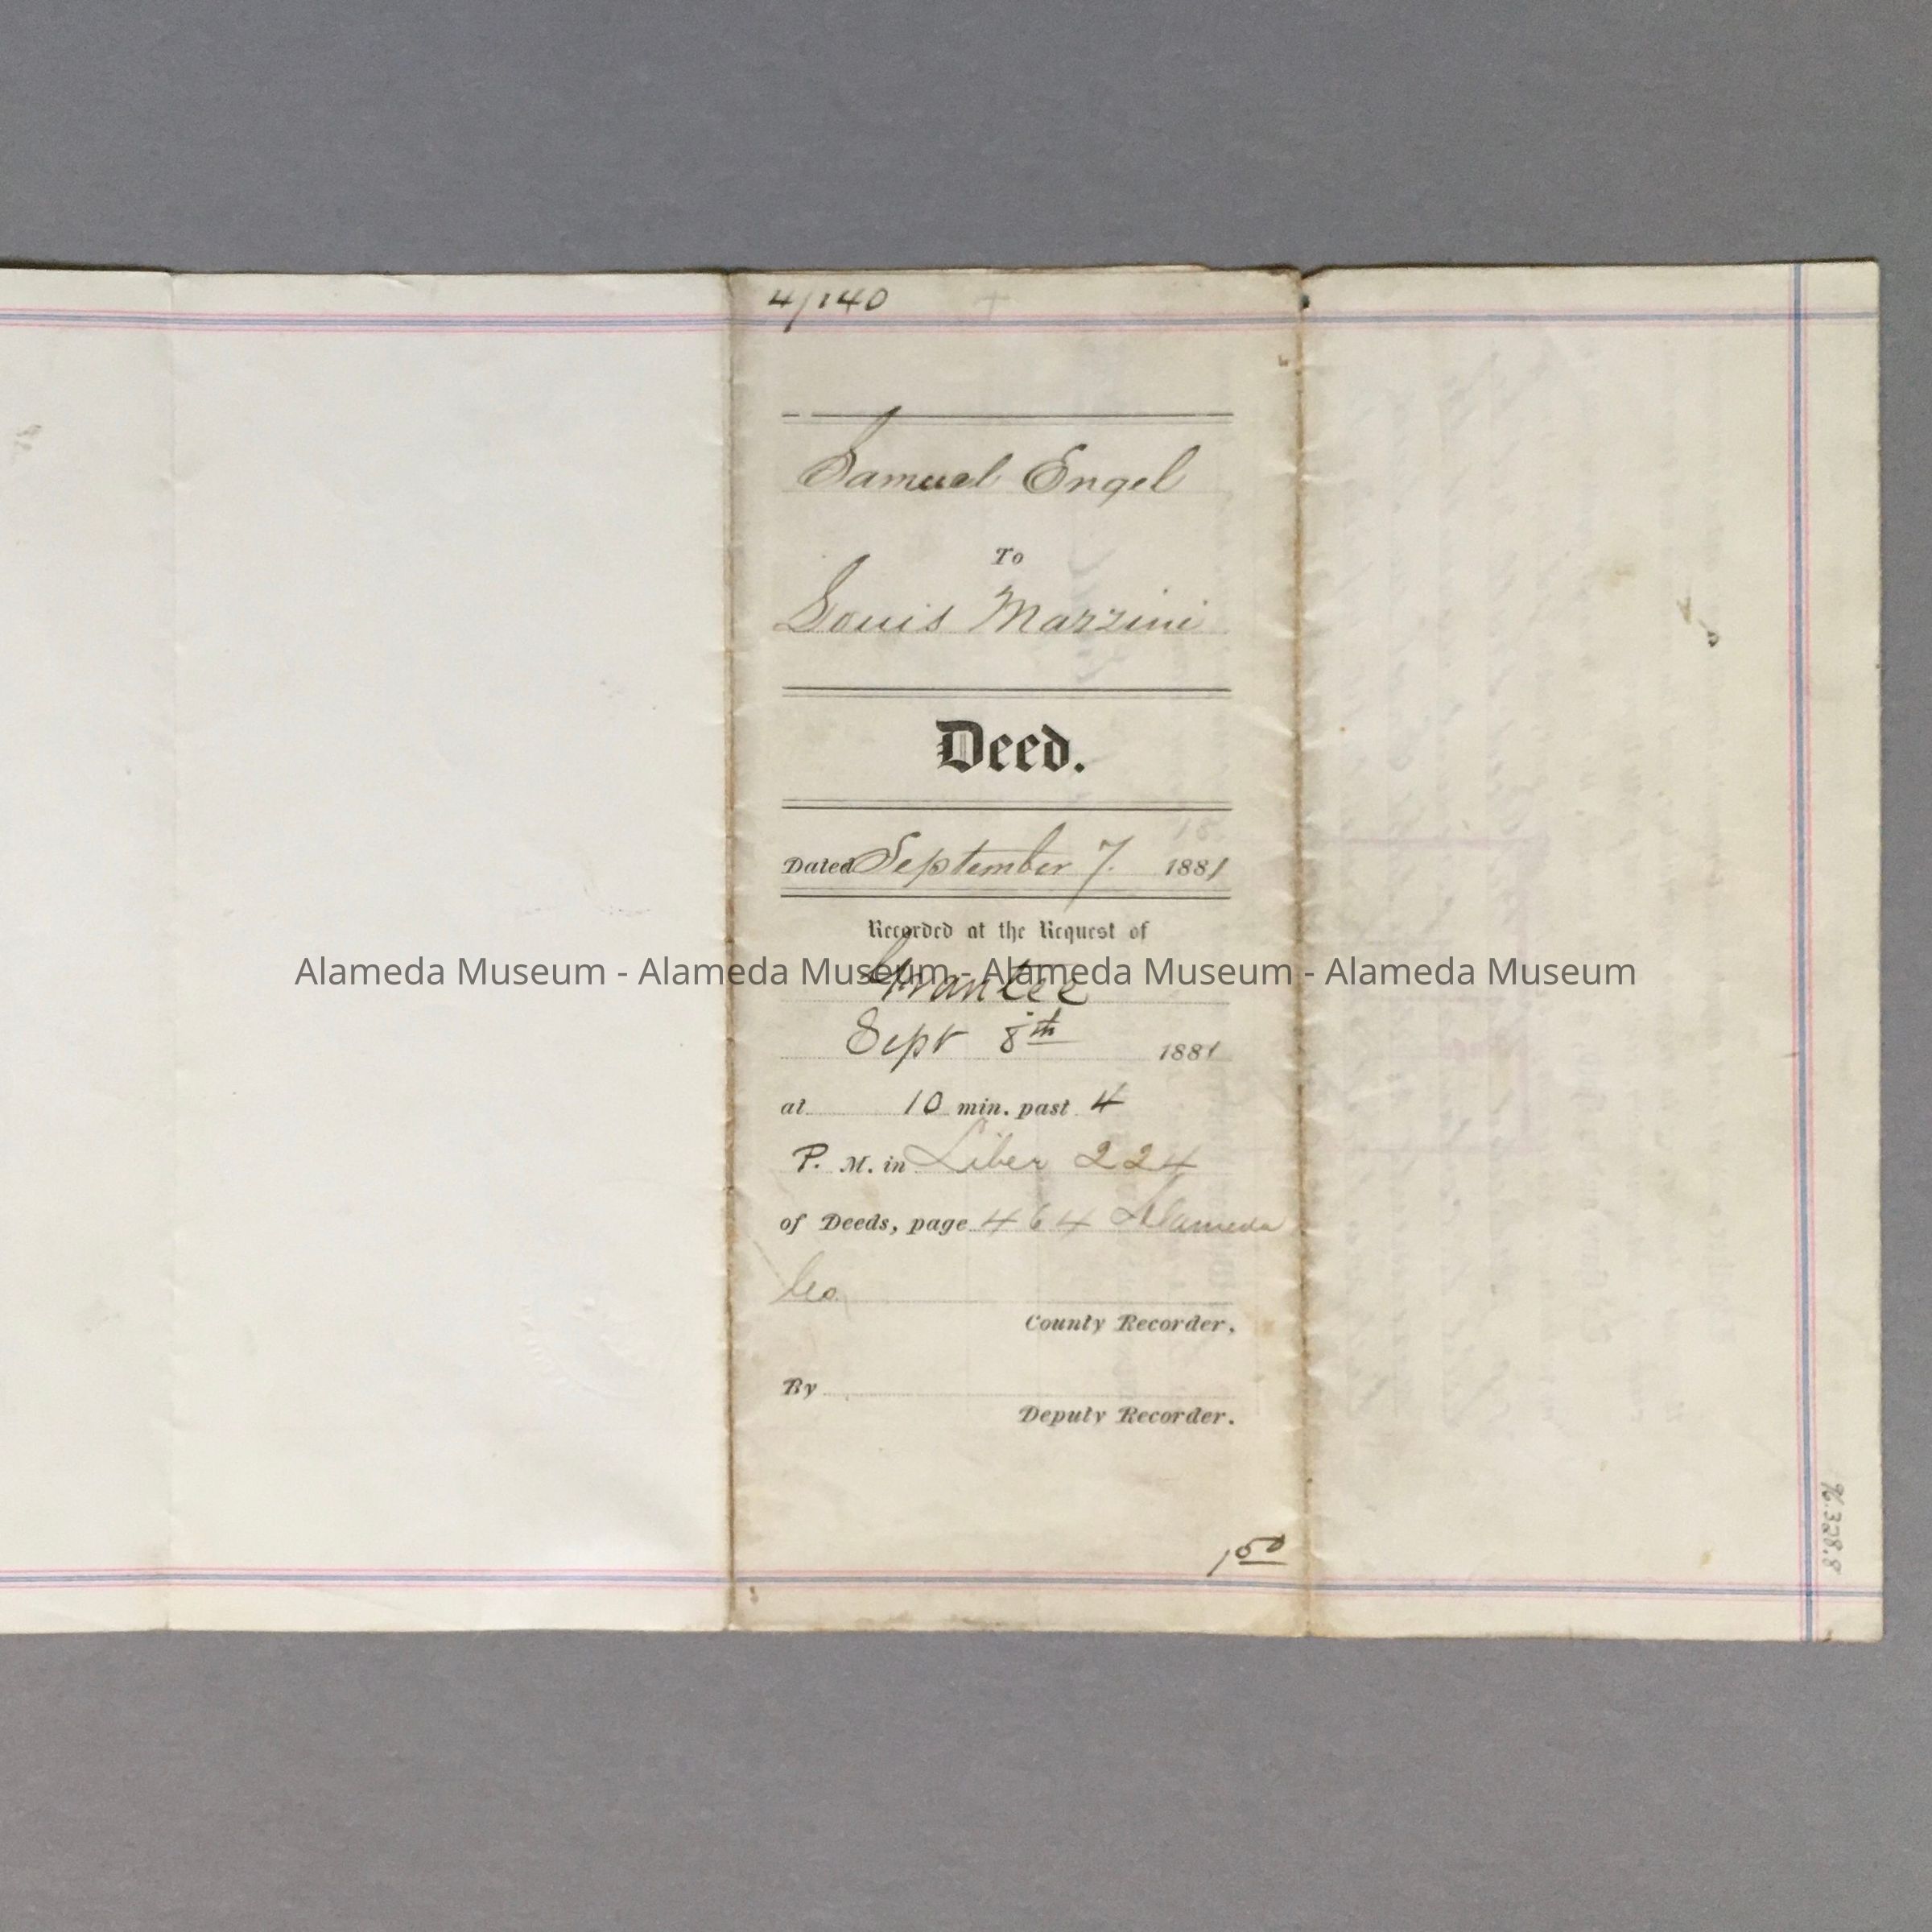 4/140
Samuel Engel
To
Louis Mazzini
Deed.
Dated September 7. 1881
Recorded at the Request of
Grantee
Alameda Museum - Alameda Museum - Alameda Museum - Alameda Museum
Sept 8th 1881
at 10 min. past 4
P. M. in Liber 224
of Deeds, page 464 Alameda
Co.
County Recorder.
By
Deputy Recorder.
1 50
96.328.8